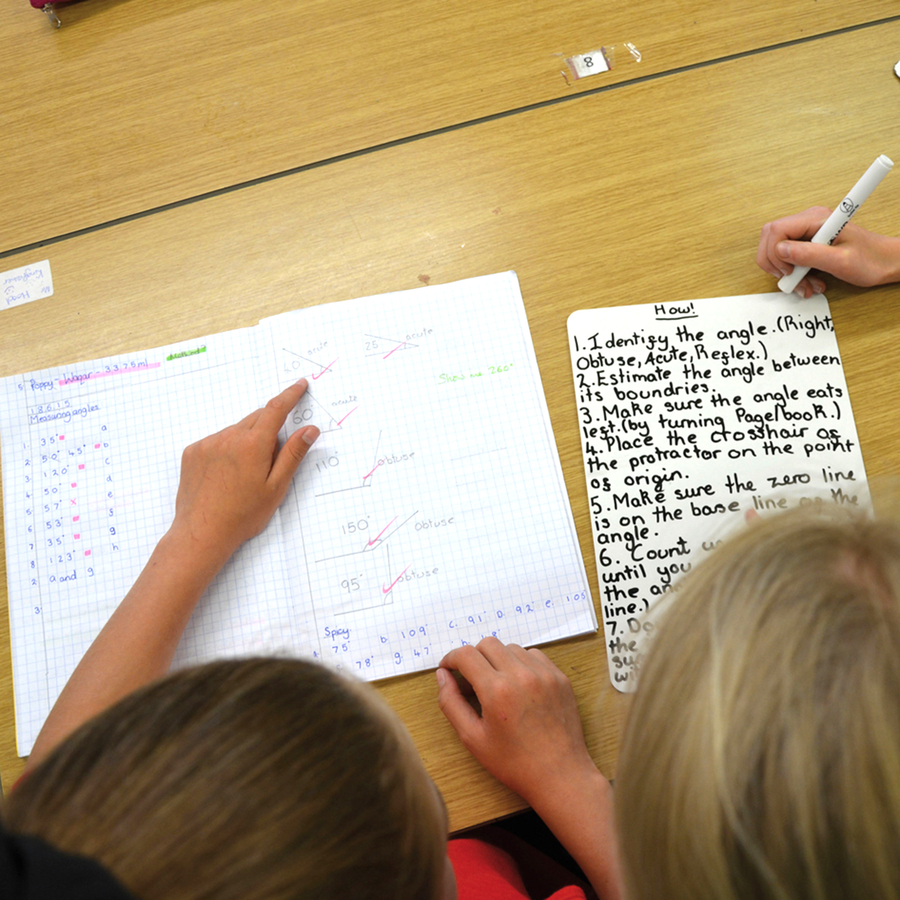 8
5 Poppy- Wagar - 3375ml
1.8.6.1.5
Measuring angles
1. 35° a
2 50° 45° b
3 120° c
4 50° d
5 57° e
6 53° f
7 35° g
8 123° h
2. a and g
3:
acute
25 acute
Show me 260°
60 acute
110° obtuse
150° obtuse
95° obtuse
Spicy
75° b. 109° c. 91° D. 92° e. 105
78° g. 47°
How!
1. Identify the angle. (Right,
Obtuse, Acute, Reflex.)
2. Estimate the angle between
its boundries.
3. Make sure the angle eats
left. (by turning Page/book.)
4. Place the crosshair of
the protractor on the point
of origin.
5. Make sure the zero line
is on the base line of the
angle.
6. Count
until you
the
line.)
7.
the